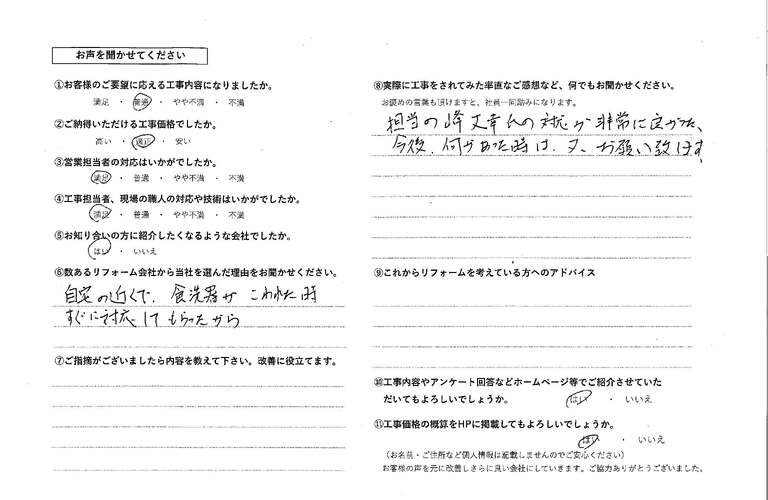 お声を聞かせてください
①お客様のご要望に応える工事内容になりましたか。
満足 ・ 普通 ・ やや不満 ・ 不満
②ご納得いただける工事価格でしたか。
高い ・ 適正 ・ 安い
③営業担当者の対応はいかがでしたか。
満足 ・ 普通 ・ やや不満 ・ 不満
④工事担当者、現場の職人の対応や技術はいかがでしたか。
満足 ・ 普通 ・ やや不満 ・ 不満
⑤お知り合いの方に紹介したくなるような会社でしたか。
はい ・ いいえ
⑥数あるリフォーム会社から当社を選んだ理由をお聞かせください。
自宅の近くで、食洗器がこわれた時
すぐに対応してもらったから
⑦ご指摘がございましたら内容を教えて下さい。改善に役立てます。
⑧実際に工事をされてみた率直なご感想など、何でもお聞かせください。
お褒めの言葉も頂けますと、社員一同励みになります。
担当の峰丈幸氏の対応が非常に良かった、
今後、何かあった時は、又、お願い致します。
⑨これからリフォームを考えている方へのアドバイス
⑩工事内容やアンケート回答などホームページ等でご紹介させていた
だいてもよろしいでしょうか。 はい ・ いいえ
⑪工事価格の概算をHPに掲載してもよろしいでしょうか。
はい ・ いいえ
（お名前・ご住所など個人情報は記載しませんのでご安心ください）
お客様の声を元に改善しさらに良い会社にしていきます。ご協力ありがとうございました。